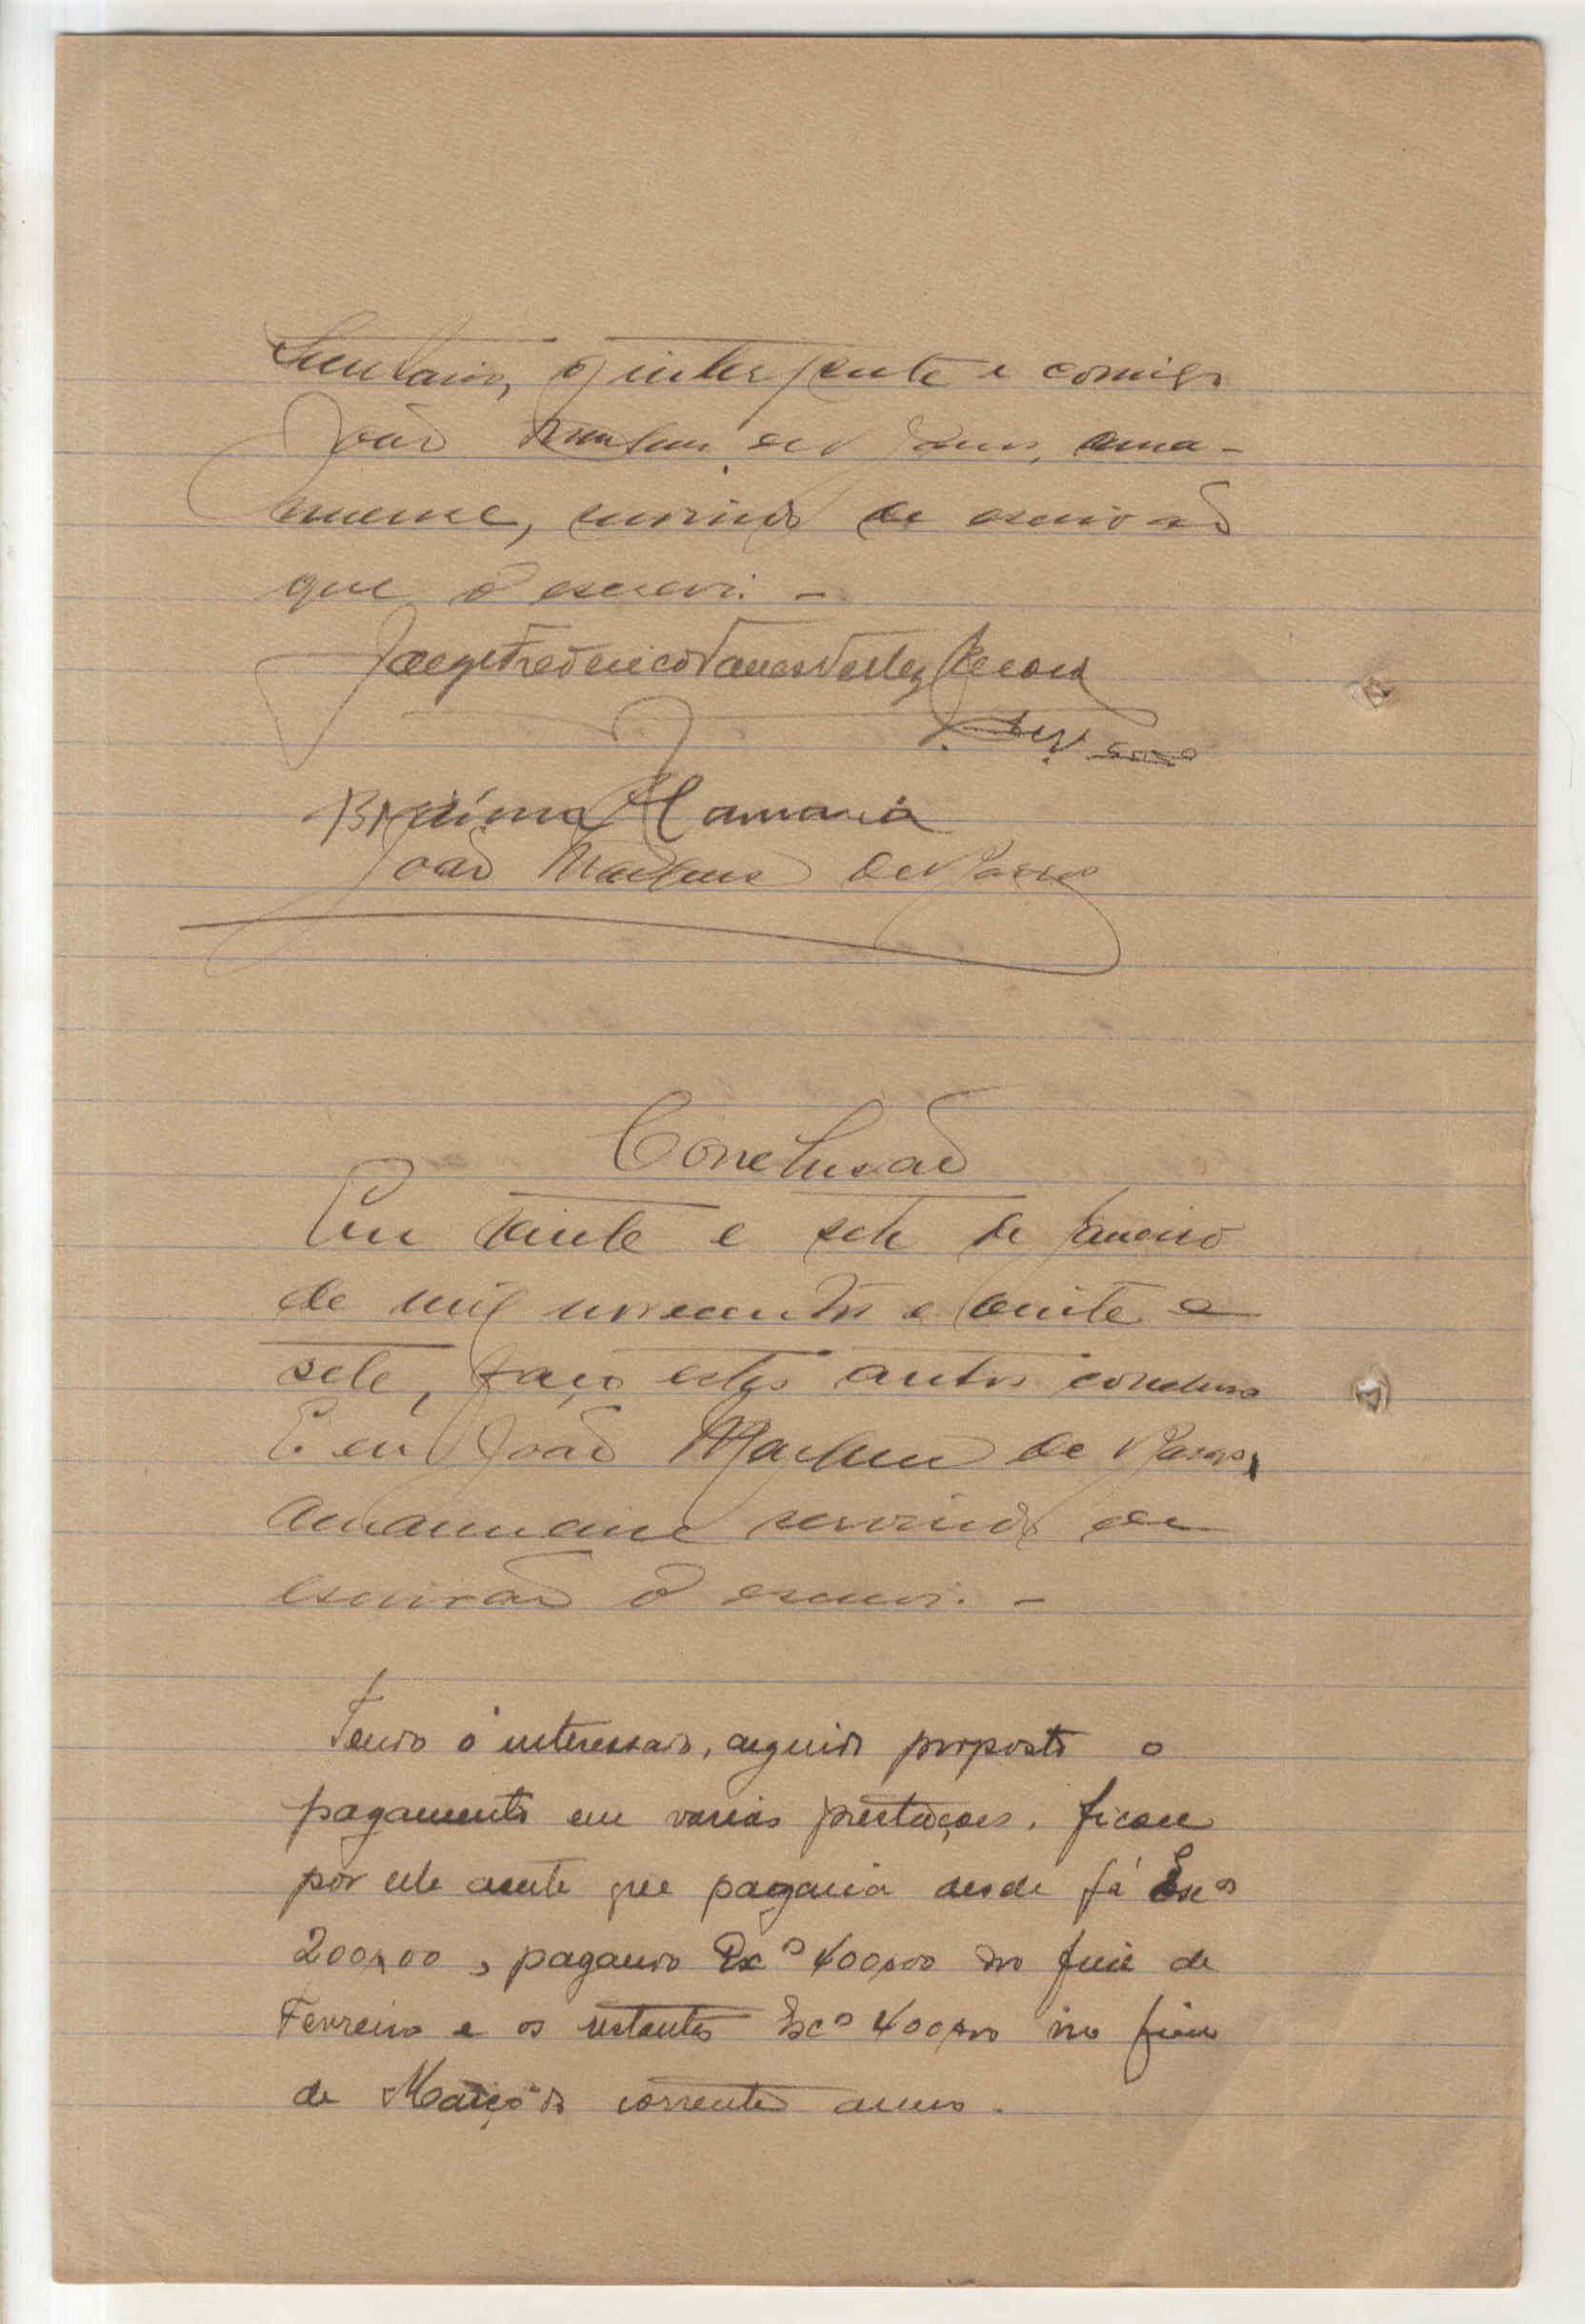 o interprete e comigo
João Martins de Passos, ama-
nuense, servindo de escrivão
que o escrevi. –
Jorge Frederico Torres Velez Caroço
Braima Camará
João Martins de Passos
Conclusão
Em vinte e sete de Janeiro
de mil novecentos e vinte e
sete, faço estes autos conclusos
E eu João Martins de Passos,
amanuense servindo de
escrivão o escrevi. –
Tendo o interessado, arguido proposto o
pagamento em varias prestações, ficou
por ele aceite que pagaria desde já Escos
200$00, pagando Esco 400$00 no fim de
Fevreiro e os restantes Esco 400$00 no fim
de Março do corrente anno.